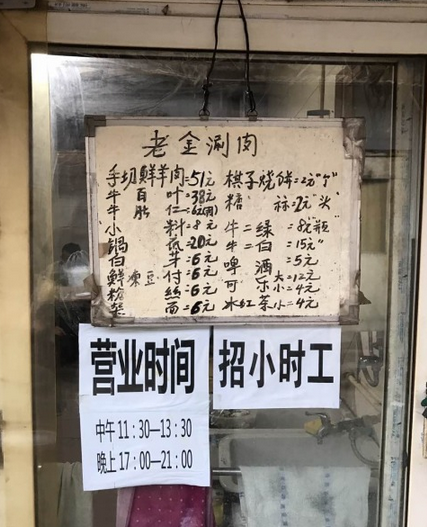 老金涮肉
手切鲜羊肉=51元
牛百叶=38元
牛肚仁=
小料=8元
锅=20元
白芽=6元
鲜冻豆付=6元
丝=6元
面=6元
棋子烧饼=2元"个"
糖蒜=2元"头"
牛二绿=8元"瓶"
牛二白=15元"
啤酒=5元
大=12元
可乐小=4元
冰红茶小=4元
营业时间
中午 11:30—13:30
晚上 17:00—21:00
招小时工